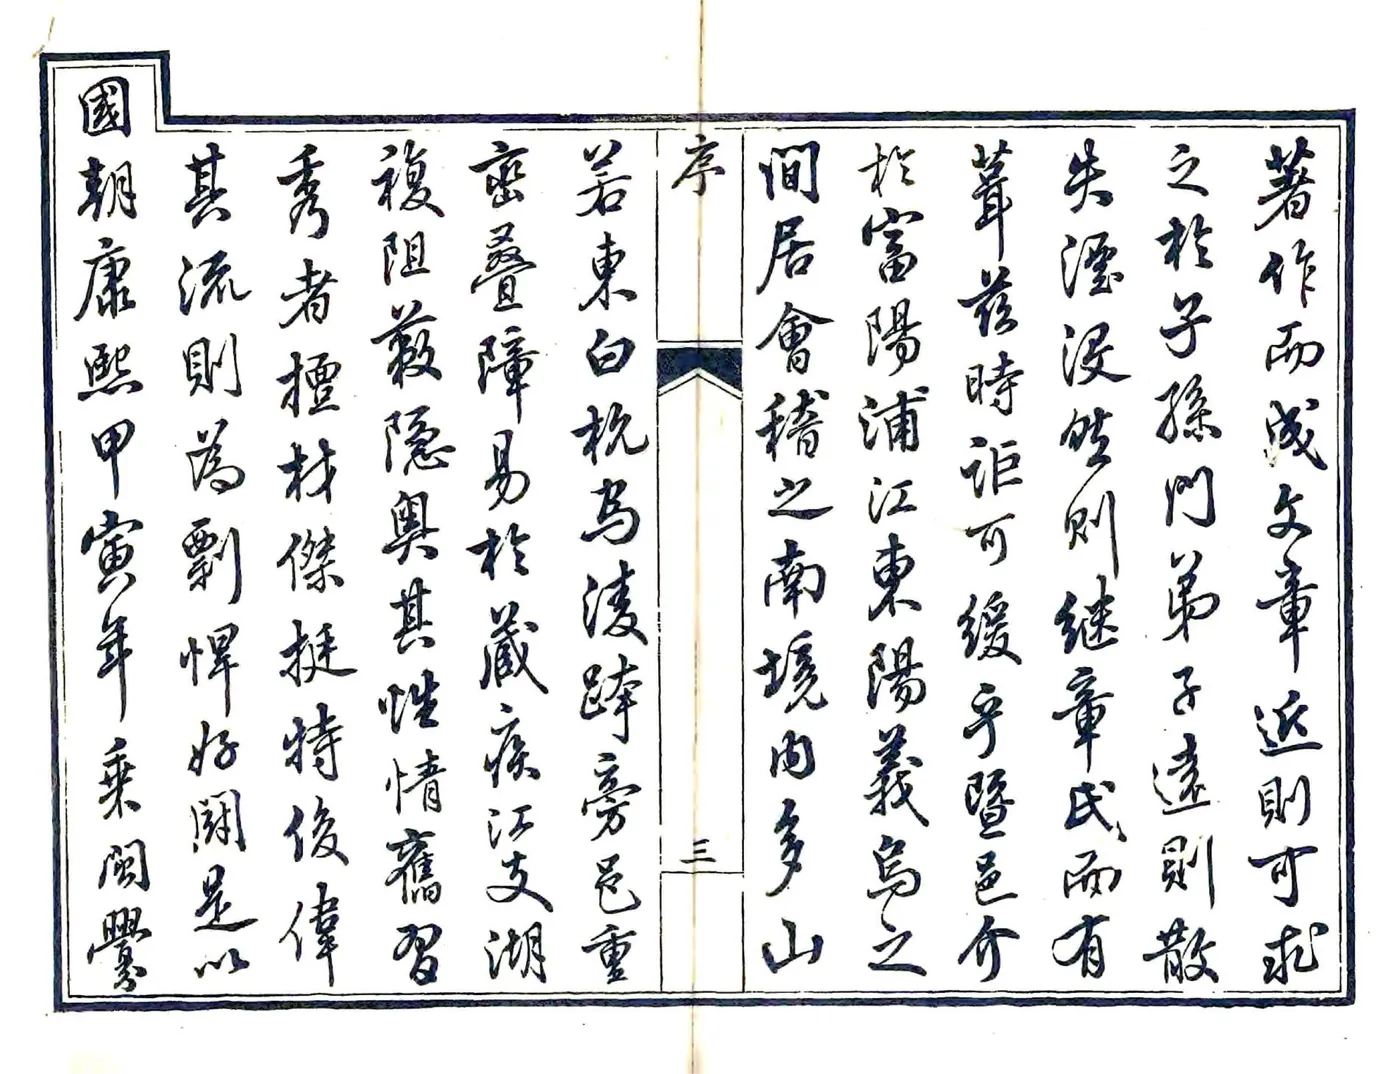 著作而成文章近則可求
之於子孫門弟子遠則散
失湮沒然則继章氏而有
葺兹時詎可緩乎暨邑介
於富陽浦江東陽義烏之
間居會稽之南境内多山
序
三
若東白杭烏淩跨旁邑重
巒叠障易於藏疾江支湖
複阻薮隐奥其性情舊習
秀者檀材傑挺特俊偉
其流則為剽悍好鬭是以
國朝康熙甲寅年乗閩釁